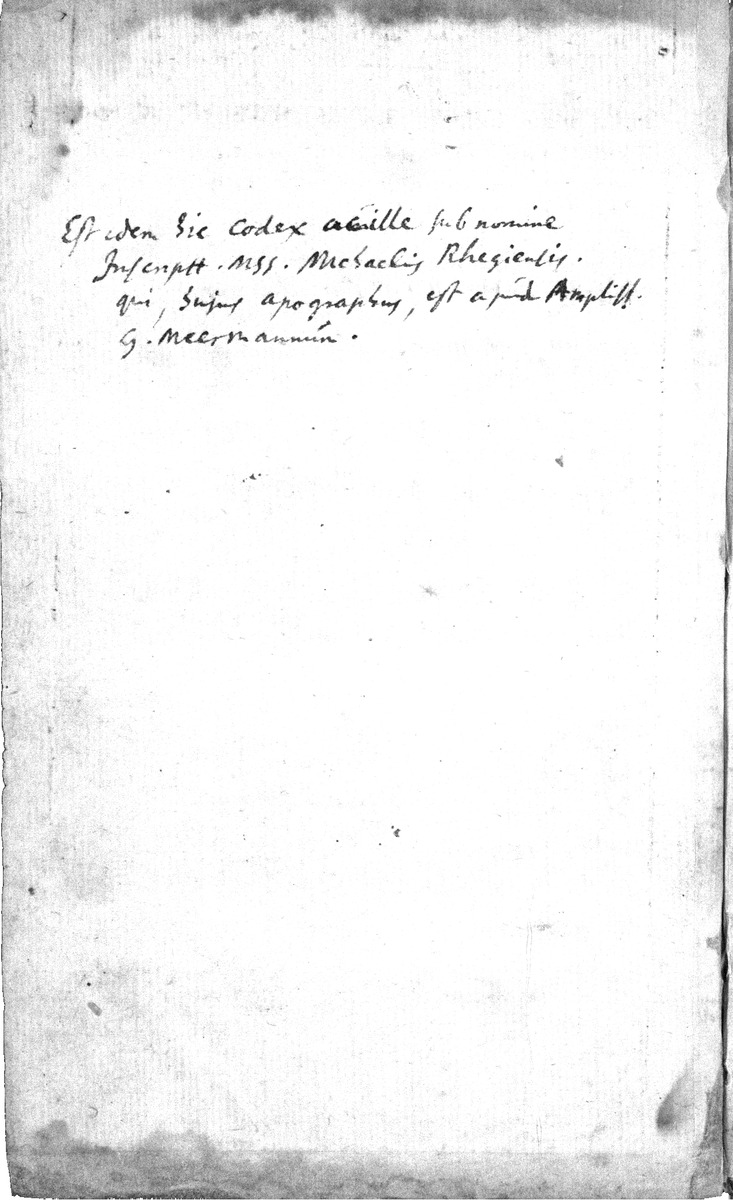 Est idem hic codex ac ille sub nomine
Inscriptt. MSS. Michaelis Rhegiensis.
qui, hujus apographus, est apud Ampliss.
G. Meermannum.